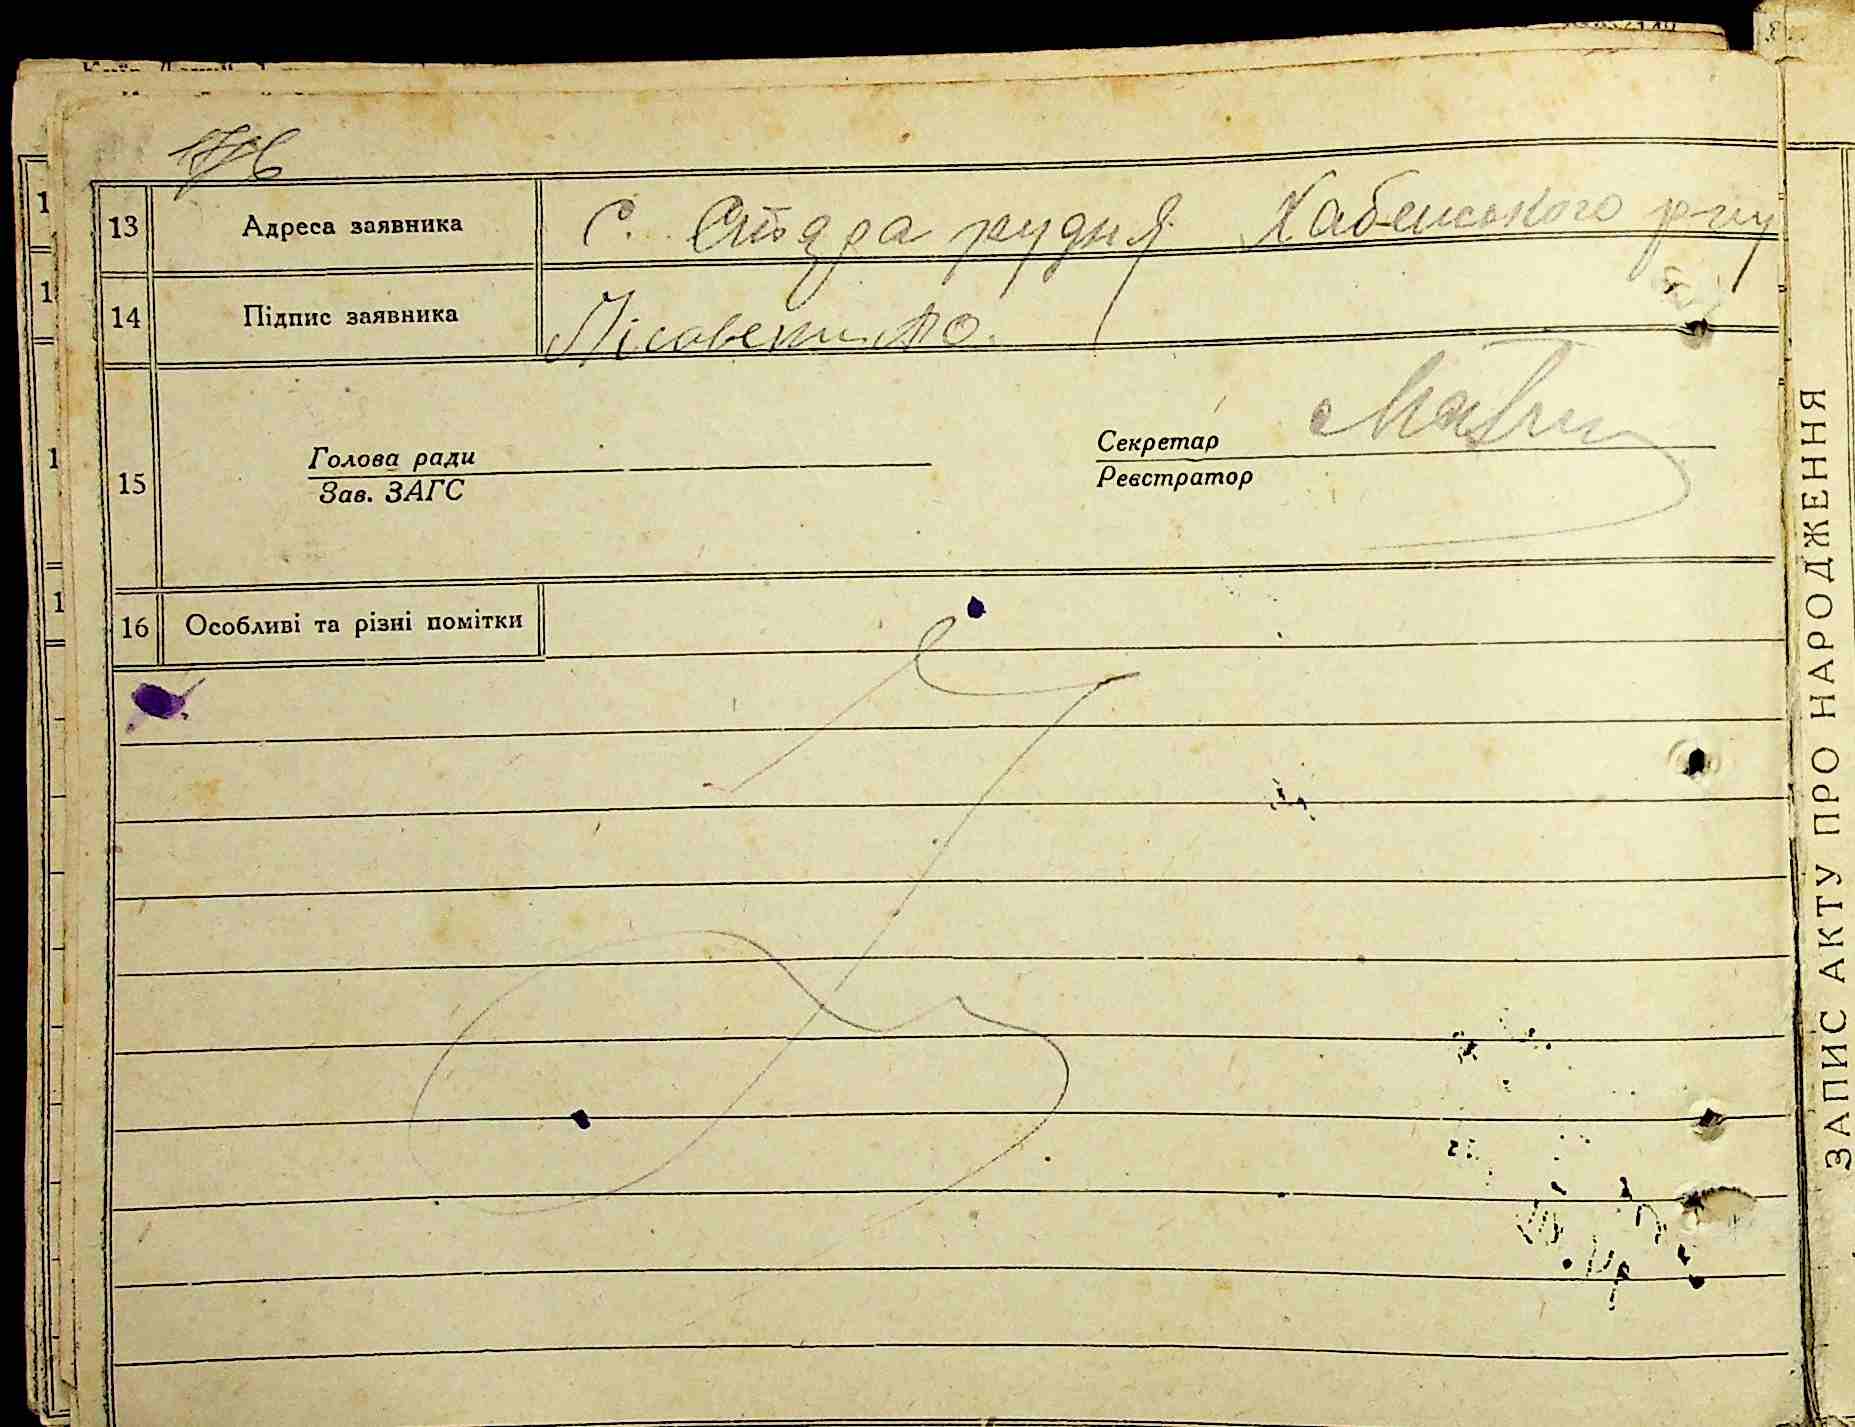 176
13 Адреса заявника С. Стара рудня Хабенського р-ну
14 Підпис заявника
15 Голова ради
Зав. ЗАГС
Секретар
Реєстратор
16 Особливі та різні помітки
ЗАПИС АКТУ ПРО НАРОДЖЕННЯ